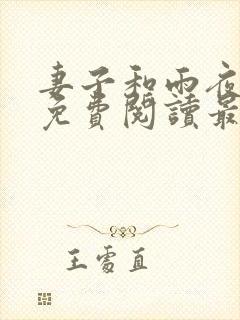 妻子和雨夜
免費閱讀最
王雪直